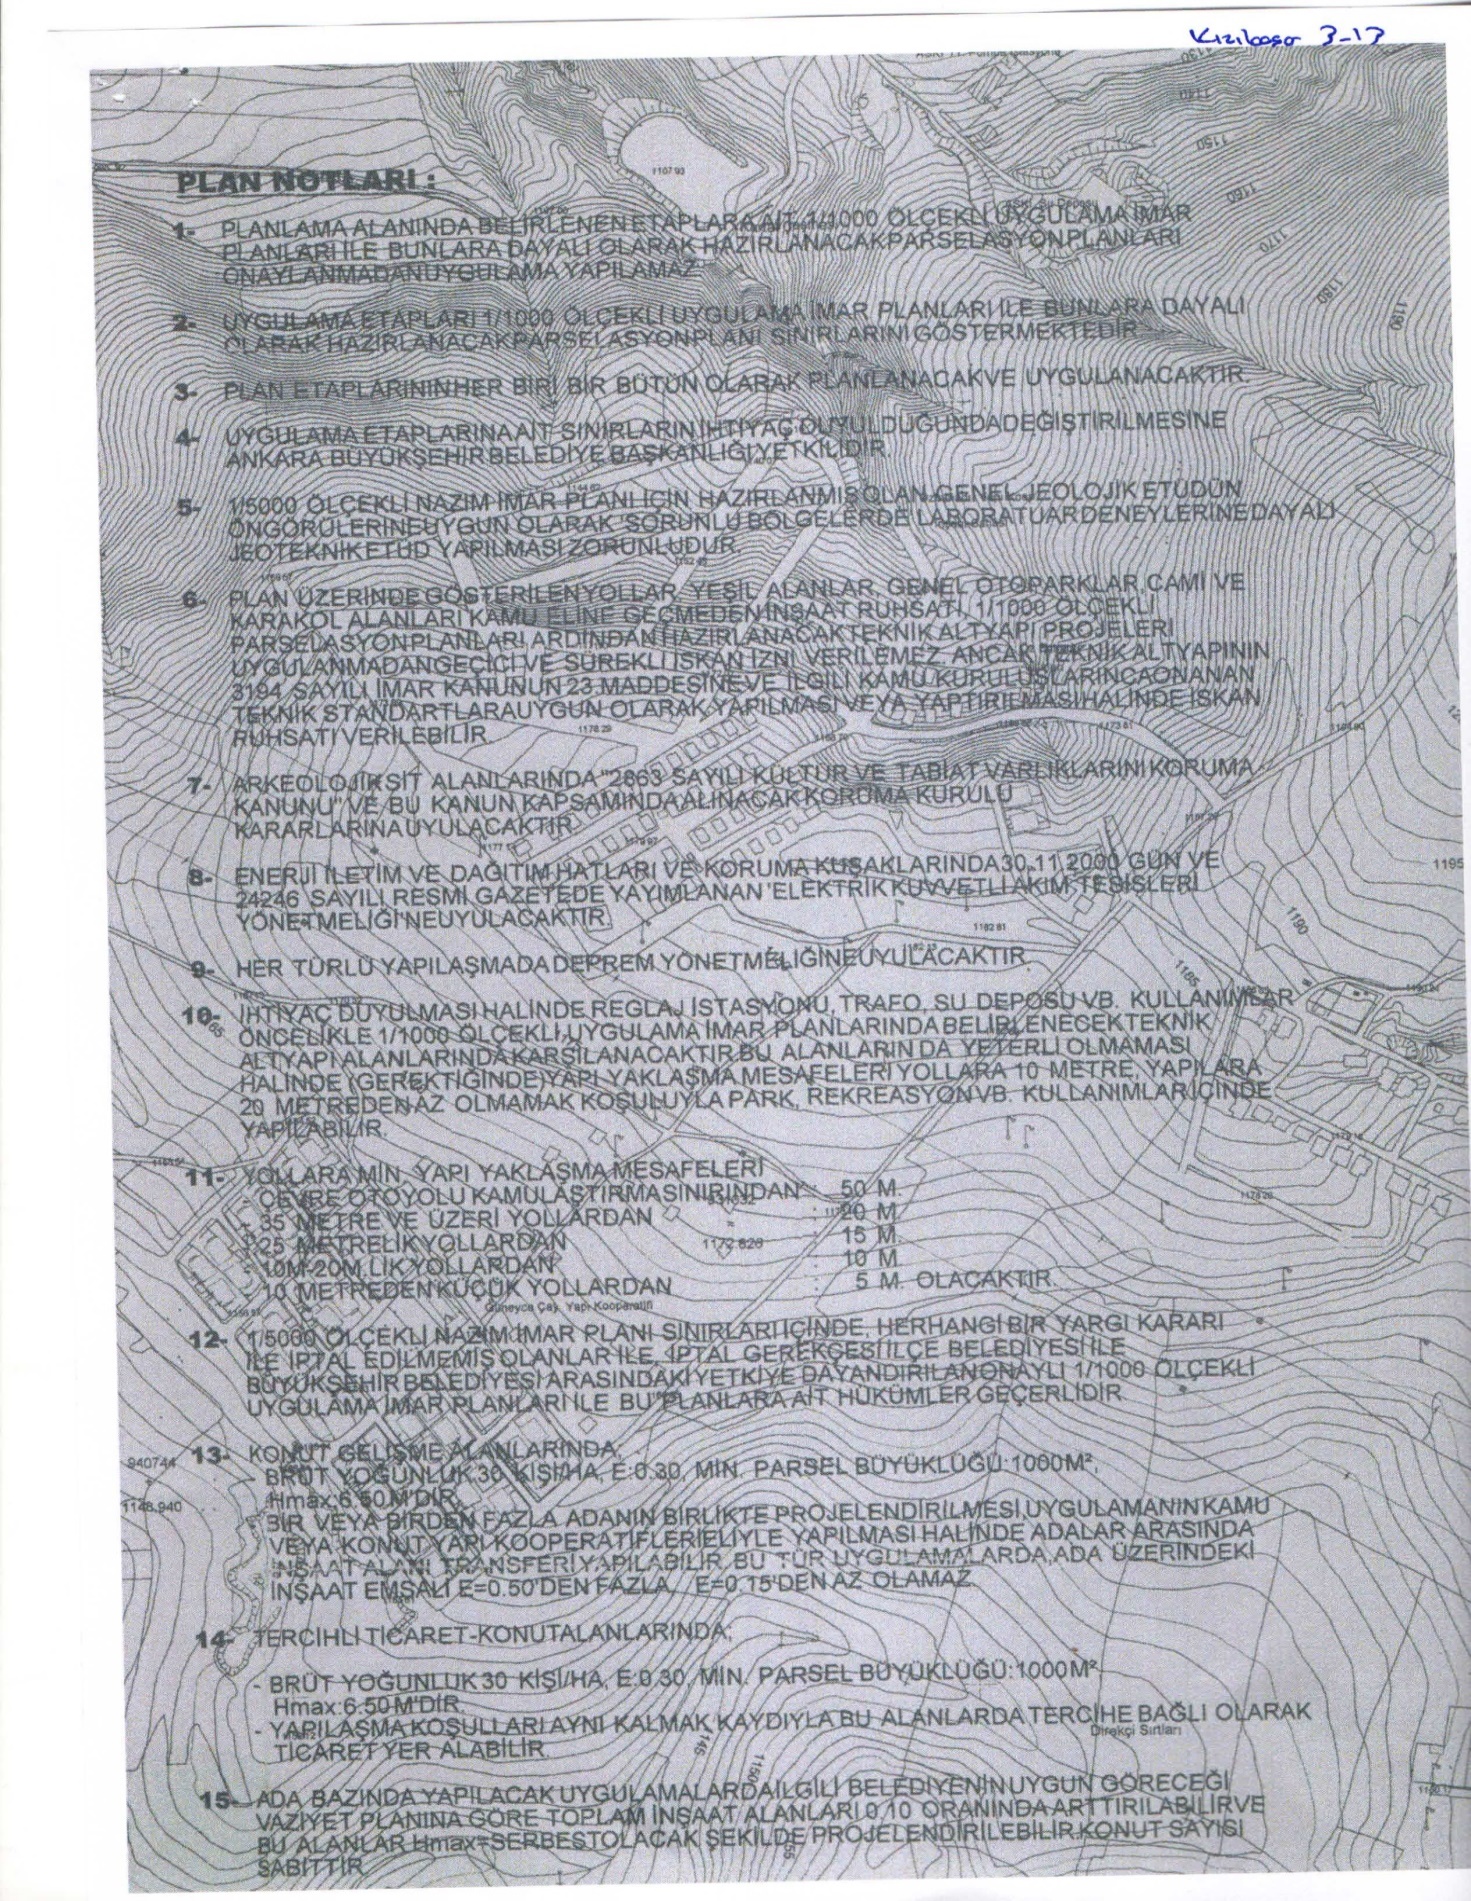 Kızılbaşa 3-13
PLAN NOTLARI :
1- PLANLAMA ALANINDA BELİRLENEN ETAPLARA AİT 1/1000 ÖLÇEKLİ UYGULAMA İMAR
PLANLARI İLE BUNLARA DAYALI OLARAK HAZIRLANACAK PARSELASYON PLANLARI
ONAYLANMADAN UYGULAMA YAPILAMAZ.
2- UYGULAMA ETAPLARI 1/1000 ÖLÇEKLİ UYGULAMA İMAR PLANLARI İLE BUNLARA DAYALI
OLARAK HAZIRLANACAK PARSELASYON PLANI SINIRLARINI GÖSTERMEKTEDİR.
3- PLAN ETAPLARININ HER BİRİ BİR BÜTÜN OLARAK PLANLANACAK VE UYGULANACAKTIR.
4- UYGULAMA ETAPLARINA AİT SINIRLARIN İHTİYAÇ DUYULDUĞUNDA DEĞİŞTİRİLMESİNE
ANKARA BÜYÜKŞEHİR BELEDİYE BAŞKANLIĞI YETKİLİDİR.
5- 1/5000 ÖLÇEKLİ NAZIM İMAR PLANI İÇİN HAZIRLANMIŞ OLAN GENEL JEOLOJİK ETÜDÜN
ÖNGÖRÜLERİNE UYGUN OLARAK SORUNLU BÖLGELERDE LABORATUAR DENEYLERİNE DAYALI
JEOTEKNİK ETÜD YAPILMASI ZORUNLUDUR.
6- PLAN ÜZERİNDE GÖSTERİLEN YOLLAR, YEŞİL ALANLAR, GENEL OTOPARKLAR, CAMİ VE
KARAKOL ALANLARI KAMU ELİNE GEÇMEDEN İNŞAAT RUHSATI, 1/1000 ÖLÇEKLİ
PARSELASYON PLANLARI ARDINDAN HAZIRLANACAK TEKNİK ALTYAPI PROJELERİ
UYGULANMADAN GEÇİCİ VE SÜREKLİ İSKAN İZNİ VERİLEMEZ. ANCAK TEKNİK ALTYAPININ
3194 SAYILI İMAR KANUNUN 23. MADDESİNE VE İLGİLİ KAMU KURULUŞLARINCA ONANAN
TEKNİK STANDARTLARA UYGUN OLARAK YAPILMASI VEYA YAPTIRILMASI HALİNDE İSKAN
RUHSATI VERİLEBİLİR
1178 29
7- ARKEOLOJİK SİT ALANLARINDA "2863 SAYILI KÜLTÜR VE TABİAT VARLIKLARINI KORUMA
KANUNU" VE BU KANUN KAPSAMINDA ALINACAK KORUMA KURULU
KARARLARINA UYULACAKTIR.
8- ENERJİ İLETİM VE DAĞITIM HATLARI VE KORUMA KUŞAKLARINDA 30.11.2000 GÜN VE
24246 SAYILI RESMİ GAZETEDE YAYIMLANAN 'ELEKTRİK KUVVETLİ AKIM TESİSLERİ
YÖNETMELİĞİ'NE UYULACAKTIR.
1182 81
9- HER TÜRLÜ YAPILAŞMADA DEPREM YÖNETMELİĞİNE UYULACAKTIR.
10- İHTİYAÇ DUYULMASI HALİNDE REGLAJ İSTASYONU, TRAFO, SU DEPOSU VB. KULLANIMLAR
ÖNCELİKLE 1/1000 ÖLÇEKLİ UYGULAMA İMAR PLANLARINDA BELİRLENECEK TEKNİK
ALTYAPI ALANLARINDA KARŞILANACAKTIR. BU ALANLARIN DA YETERLİ OLMAMASI
HALİNDE (GEREKTİĞİNDE) YAPI YAKLAŞMA MESAFELERİ YOLLARA 10 METRE, YAPILARA
20 METREDEN AZ OLMAMAK KOŞULUYLA PARK, REKREASYON VB. KULLANIMLAR İÇİNDE
YAPILABİLİR.
11- YOLLARA MİN. YAPI YAKLAŞMA MESAFELERİ
- ÇEVRE OTOYOLU KAMULAŞTIRMA SINIRINDAN : 50 M.
- 35 METRE VE ÜZERİ YOLLARDAN : 20 M.
- 25 METRELİK YOLLARDAN : 15 M.
- 10M-20M.LİK YOLLARDAN : 10 M.
- 10 METREDEN KÜÇÜK YOLLARDAN : 5 M. OLACAKTIR.
1172.828
Güneyce Çay. Yapı Kooperatifi
12- 1/5000 ÖLÇEKLİ NAZIM İMAR PLANI SINIRLARI İÇİNDE, HERHANGİ BİR YARGI KARARI
İLE İPTAL EDİLMEMİŞ OLANLAR İLE, İPTAL GEREKÇESİ İLÇE BELEDİYESİ İLE
BÜYÜKŞEHİR BELEDİYESİ ARASINDAKİ YETKİYE DAYANDIRILAN ONAYLI 1/1000 ÖLÇEKLİ
UYGULAMA İMAR PLANLARI İLE BU PLANLARA AİT HÜKÜMLER GEÇERLİDİR.
13- KONUT GELİŞME ALANLARINDA;
- BRÜT YOĞUNLUK 30 KİŞİ/HA, E:0.30, MİN. PARSEL BÜYÜKLÜĞÜ:1000 M²,
Hmax:6.50 M'DİR.
- BİR VEYA BİRDEN FAZLA ADANIN BİRLİKTE PROJELENDİRİLMESİ, UYGULAMANIN KAMU
VEYA KONUT YAPI KOOPERATİFLERİ ELİYLE YAPILMASI HALİNDE ADALAR ARASINDA
İNŞAAT ALANI TRANSFERİ YAPILABİLİR. BU TÜR UYGULAMALARDA, ADA ÜZERİNDEKİ
İNŞAAT EMSALİ E=0.50'DEN FAZLA, E=0.15'DEN AZ OLAMAZ.
940744
1148.940
14- TERCİHLİ TİCARET-KONUT ALANLARINDA;
- BRÜT YOĞUNLUK 30 KİŞİ/HA, E:0.30, MİN. PARSEL BÜYÜKLÜĞÜ:1000 M²
Hmax:6.50 M'DİR.
- YAPILAŞMA KOŞULLARI AYNI KALMAK KAYDIYLA BU ALANLARDA TERCİHE BAĞLI OLARAK
TİCARET YER ALABİLİR.
Direkçi Sırtları
15- ADA BAZINDA YAPILACAK UYGULAMALARDA İLGİLİ BELEDİYENİN UYGUN GÖRECEĞİ
VAZİYET PLANINA GÖRE TOPLAM İNŞAAT ALANLARI 0.10 ORANINDA ARTTIRILABİLİR VE
BU ALANLAR Hmax=SERBEST OLACAK ŞEKİLDE PROJELENDİRİLEBİLİR. KONUT SAYISI
SABİTTİR.
1107 93
1140
1150
1160
1170
1180
1190
1195
1190
1185